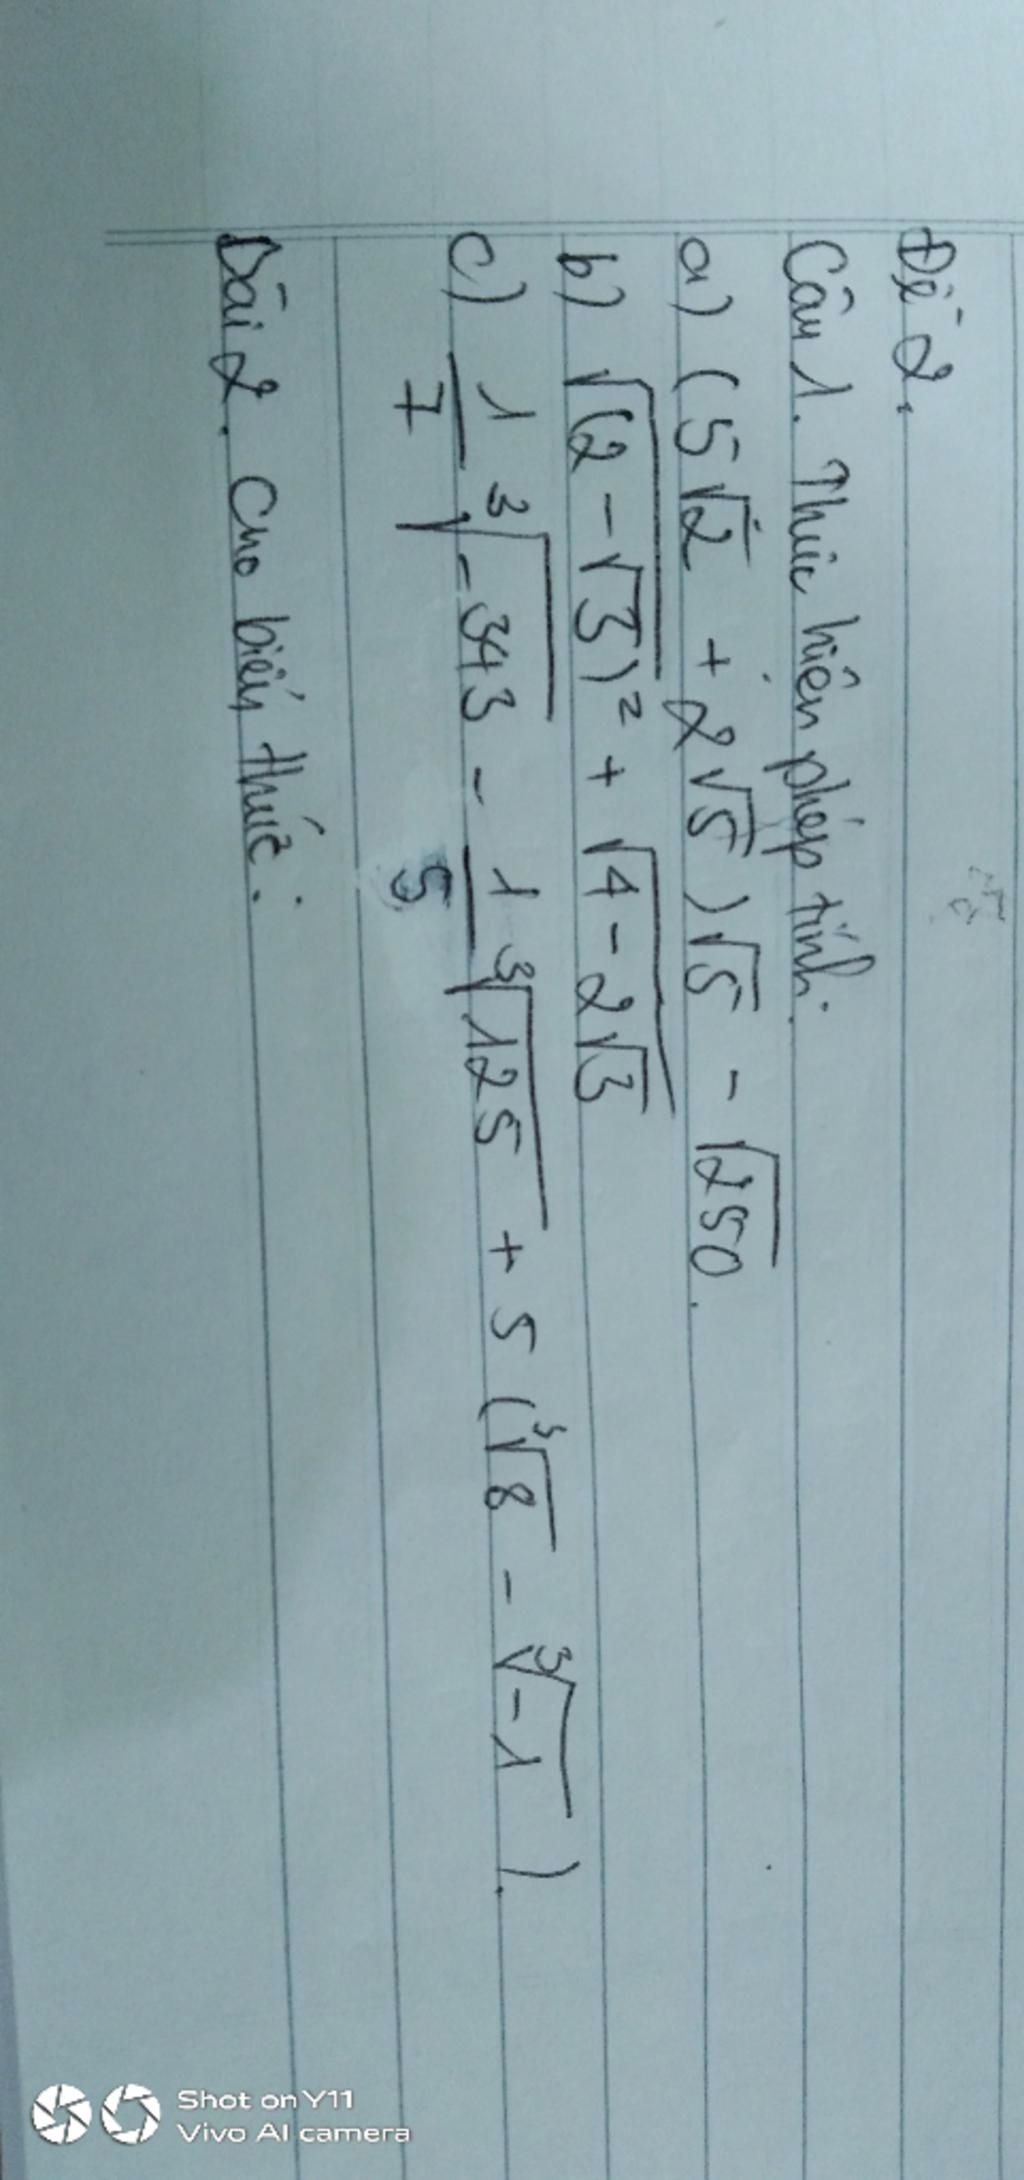 Đề 2.
Câu 1. Thực hiện phép tính.
a) (5√2 + 2√5)√5 - √250.
b) √(2 - √3)² + √4 - 2√3
c) 1/7 ³√-343 - 1/5 ³√125 + 5 (³√8 - ³√-1).
Bài 2. Cho biểu thức:
Shot on Y11
Vivo AI camera